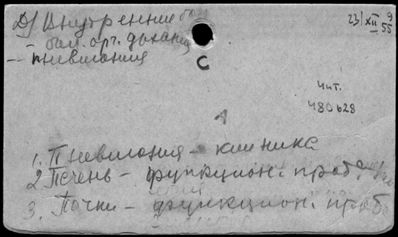 Д) Внутренние бол
- бол. орг. дыхания
-- пневмония
23/XII 9
55
С
Чит.
480628
А
1. Пневмония - клиника
2. Печень - функцион. проб.
3. Почки - функцион. проб